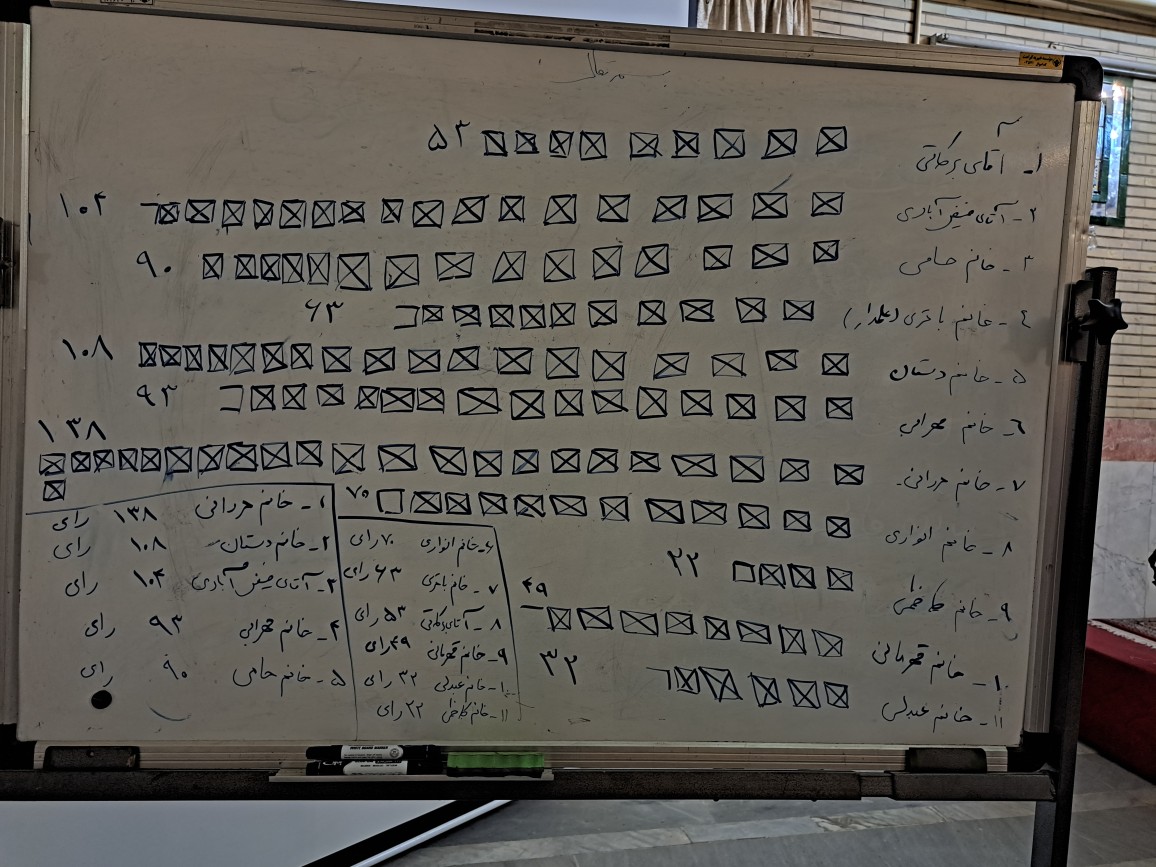 بسمه تعالی
۱ـ آقای برکاتی ۵۳
۲ـ آقای فیض آبادی ۱۰۴
۳ـ خانم حامی ۹۰
٤ـ خانم باقری (علمدار) ۶۳
۵ـ خانم دستان ۱۰۸
٦ـ خانم مهرابی ۹۳
۷ـ خانم مردانی ۱۳۸
۸ـ خانم انواری ۷۰
۹ـ خانم کاظمی ۲۲
۱۰ـ خانم قهرمانی ۴۹
۱۱ـ خانم عبدلی ۳۲
۱ـ خانم مردانی ۱۳۸ رای
۲ـ خانم دستان ۱۰۸ رای
۳ـ آقای فیض آبادی ۱۰۴ رای
۴ـ خانم مهرابی ۹۳ رای
۵ـ خانم حامی ۹۰ رای
۶ـ خانم انواری ۷۰ رای
۷ـ خانم باقری ۶۳ رای
۸ـ آقای برکاتی ۵۳ رای
۹ـ خانم قهرمانی ۴۹ رای
۱۰ـ خانم عبدلی ۳۲ رای
۱۱ـ خانم کاظمی ۲۲ رای